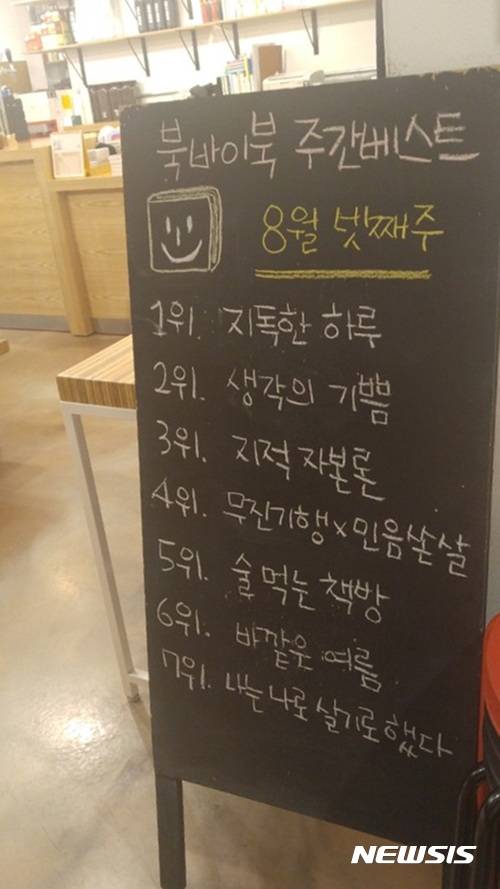 북바이북 주간베스트
8월 넷째주
1위. 지독한 하루
2위. 생각의 기쁨
3위. 지적 자본론
4위. 무진기행×민음쏜살
5위. 술 먹는 책방
6위. 바깥은 여름
7위. 나는 나로 살기로 했다
NEWSIS